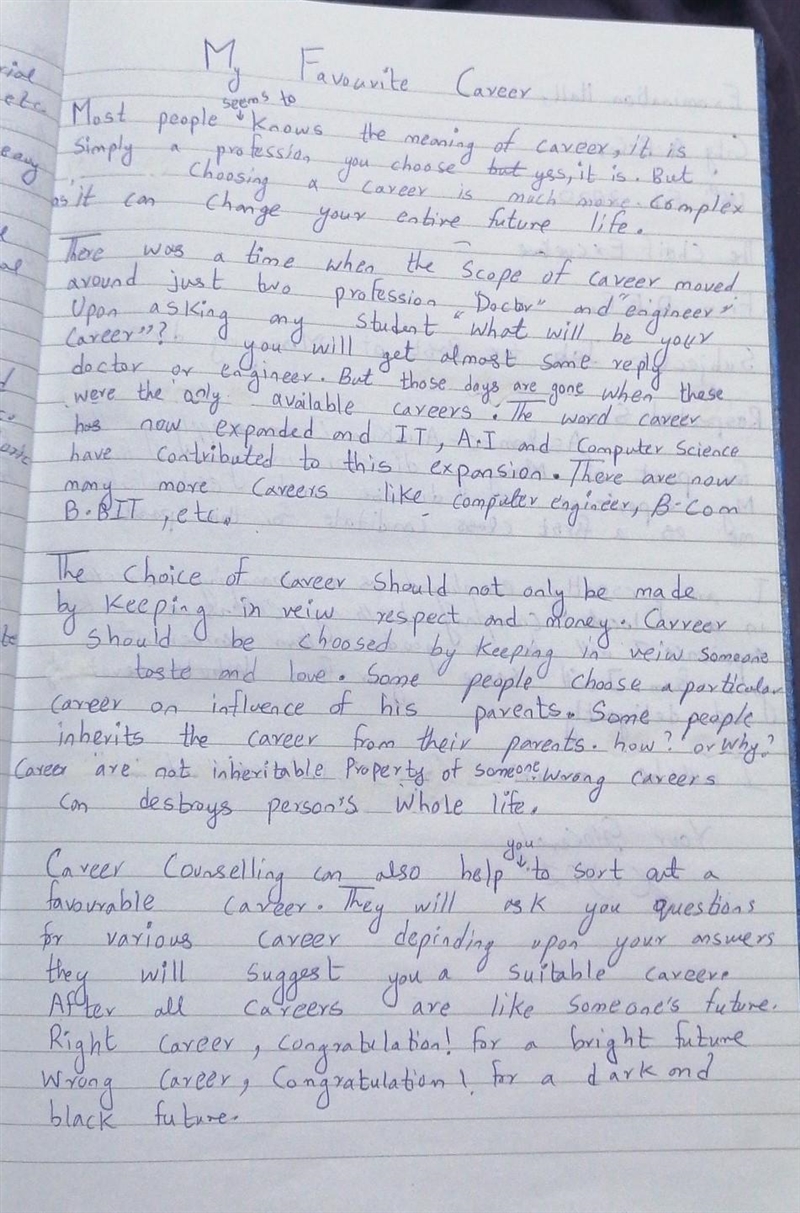 rial
etc.
easy
My Favourite Career
seems to
Most people knows the meaning of career, it is
Simply a profession you choose but yes, it is. But
Choosing a career is much more complex
as it can change your entire future life.
There was a time when the scope of career moved
around just two profession "Doctor" and "engineer".
Upon asking any student "What will be your
career"? you will get almost same reply
doctor or engineer. But those days are gone when these
were the only available careers. The word career
has now expanded and IT, A.I and Computer Science
have contributed to this expansion. There are now
many more careers like computer engineer, B-Com
B.BIT, etc.
The choice of career should not only be made
by keeping in veiw respect and money. Carreer
should be choosed by keeping in veiw someone
taste and love. Some people choose a particular
career on influence of his parents. Some people
inherits the career from their parents. how? or why?
Career are not inheritable property of someone. Wrong careers
can destroys person's whole life.
you
Career Counselling can also help to sort out a
favourable career. They will ask you questions
for various career depinding upon your answers
they will suggest you a suitable career.
After all careers are like someone's future.
Right career, congratulation! for a bright future
Wrong career, Congratulation! for a dark and
black future.